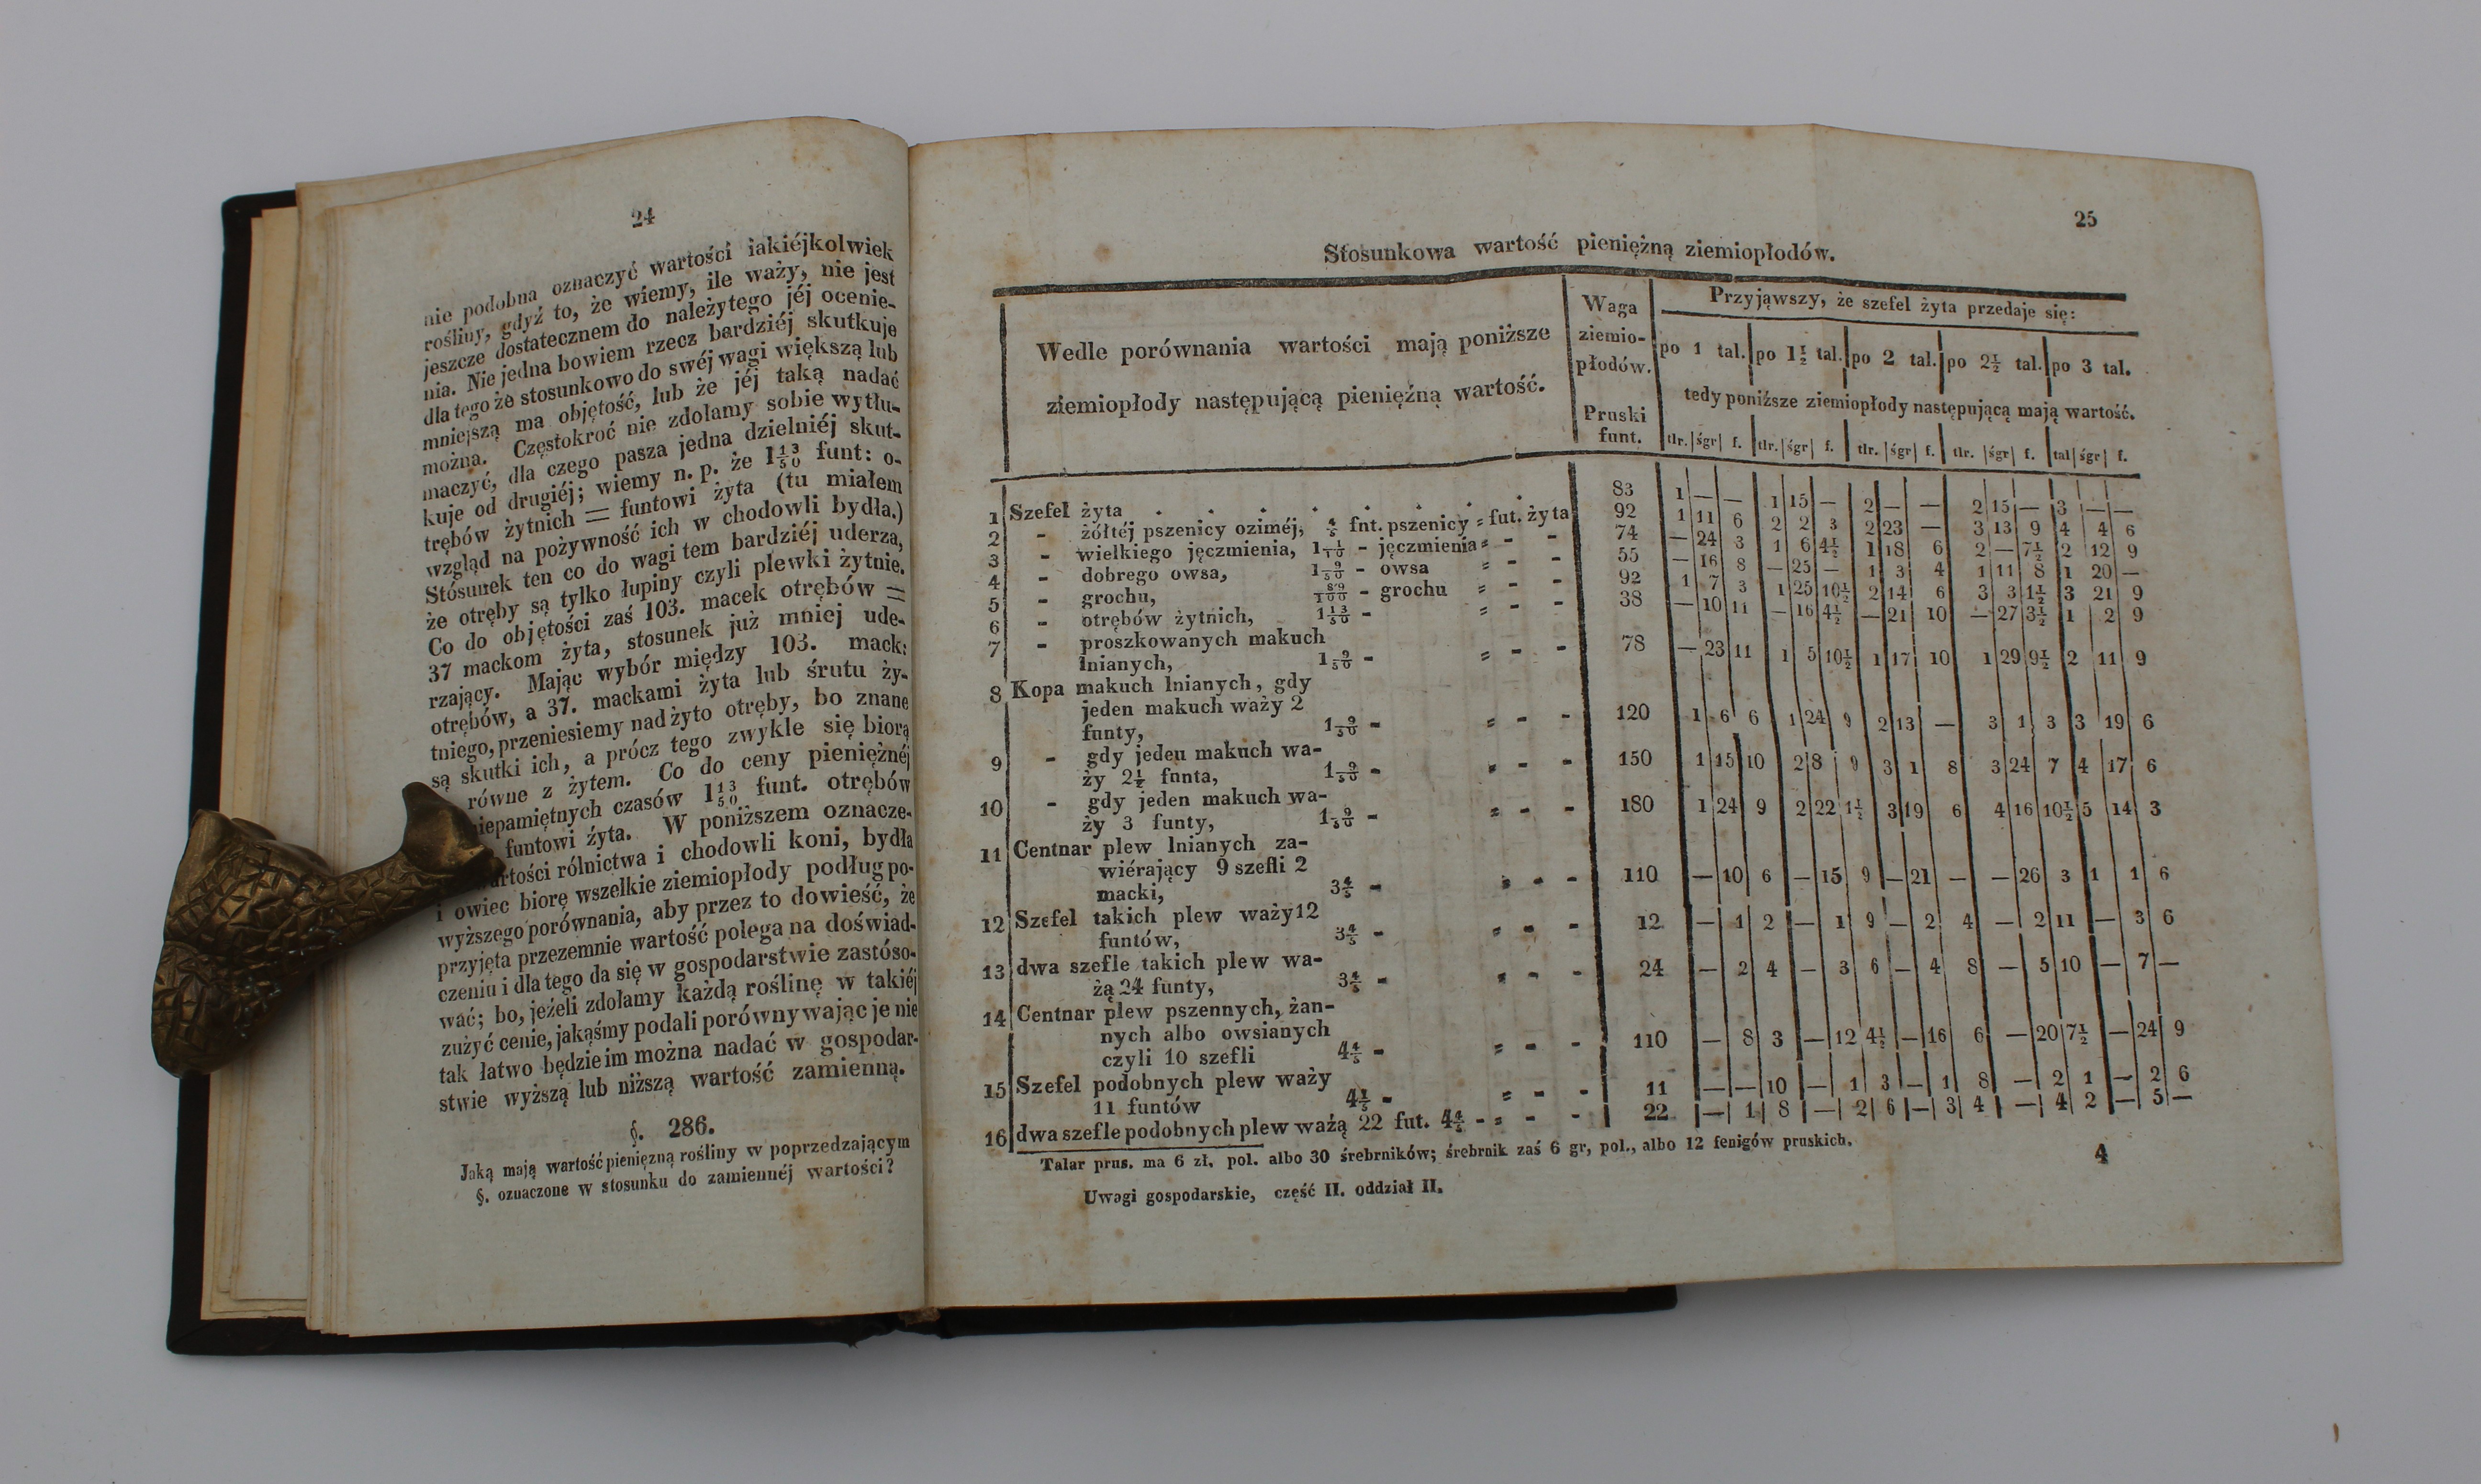 24
nie podobna oznaczyć wartości iakiéjkolwiek
rośliny, gdyż to, że wiemy, ile waży, nie jest
jeszcze dostatecznem do należytego jéj ocenie-
nia. Nie jedna bowiem rzecz bardziéj skutkuje
dla tego że stosunkowo do swéj wagi większą lub
mniejszą ma objętość, lub że jéj taką nadać
można. Częstokroć nie zdołamy sobie wytłu-
maczyć, dla czego pasza jedna dzielniéj skut-
kuje od drugiéj; wiemy n. p. że 1 13/50 funt: o-
trębów żytnich = funtowi żyta (tu miałem
wzgląd na pożywność ich w chodowli bydła.)
Stósunek ten co do wagi tem bardziéj uderza,
że otręby są tylko łupiny czyli plewki żytnie.
Co do objętości zaś 103. macek otrębów =
37 mackom żyta, stosunek już mniej ude-
rzający. Mając wybór między 103. mack:
otrębów, a 37. mackami żyta lub śrutu ży-
tniego, przeniesiemy nad żyto otręby, bo znane
są skutki ich, a prócz tego zwykle się biorą
równe z żytem. Co do ceny pieniężnéj
niepamiętnych czasów 1 13/50 funt. otrębów
funtowi żyta. W poniższem oznacze-
wartości rólnictwa i chodowli koni, bydła
i owiec biorę wszelkie ziemiopłody podług po-
wyższego porównania, aby przez to dowieść, że
przyjęta przezemnie wartość polega na doświad-
czeniu i dla tego da się w gospodarstwie zastóso-
wać; bo, jeżeli zdołamy każdą roślinę w takiéj
zużyć cenie, jakąśmy podali porównywając je nie
tak łatwo będzie im można nadać w gospodar-
stwie wyższą lub niższą wartość zamienną.
§. 286.
Jaką mają wartość pieniężną rośliny w poprzedzającym
§. oznaczone w stosunku do zamiennéj wartości?
25
Stosunkowa wartość pieniężną ziemiopłodów.
Wedle porównania wartości mają poniższe
ziemiopłody następującą pieniężną wartość.
Waga
ziemio-
płodów.
Pruski
funt.
Przyjąwszy, że szefel żyta przedaje się:
po 1 tal. po 1½ tal. po 2 tal. po 2½ tal. po 3 tal.
tedy poniższe ziemiopłody następującą mają wartość.
tlr. śgr f. tlr. śgr f. tlr. śgr f. tlr. śgr f. tal śgr f.
1 Szefel żyta . . . . . . . . 83 1 — — 1 15 — 2 — — 2 15 — 3 — —
2 - żółtéj pszenicy oziméj, ⅘ fnt. pszenicy = fut. żyta 92 1 11 6 2 2 3 2 23 — 3 13 9 4 4 6
3 - wielkiego jęczmienia, 1 1/10 - jęczmienia = - - 74 — 24 3 1 6 4½ 1 18 6 2 — 7½ 2 12 9
4 - dobrego owsa, 1 9/50 - owsa = - - 55 — 16 8 — 25 — 1 3 4 1 11 8 1 20 —
5 - grochu, 89/100 - grochu = - - 92 1 7 3 1 25 10½ 2 14 6 3 3 1½ 3 21 9
6 - otrębów żytnich, 1 13/50 - = - - 38 — 10 11 — 16 4½ — 21 10 — 27 3½ 1 2 9
7 - proszkowanych makuch
lnianych, 1 9/50 - = - - 78 — 23 11 1 5 10½ 1 17 10 1 29 9½ 2 11 9
8 Kopa makuch lnianych, gdy
jeden makuch waży 2
funty, 1 9/50 - = - - 120 1 6 6 1 24 9 2 13 — 3 1 3 3 19 6
9 - gdy jeden makuch wa-
ży 2½ funta, 1 9/50 - = - - 150 1 15 10 2 8 9 3 1 8 3 24 7 4 17 6
10 - gdy jeden makuch wa-
ży 3 funty, 1 9/50 - = - - 180 1 24 9 2 22 1½ 3 19 6 4 16 10½ 5 14 3
11 Centnar plew lnianych za-
wiérający 9 szefli 2
macki, 3⅘ - = - - 110 — 10 6 — 15 9 — 21 — — 26 3 1 1 6
12 Szefel takich plew waży 12
funtów, 3⅘ - = - - 12 — 1 2 — 1 9 — 2 4 — 2 11 — 3 6
13 dwa szefle takich plew wa-
żą 24 funty, 3⅘ - = - - 24 — 2 4 — 3 6 — 4 8 — 5 10 — 7 —
14 Centnar plew pszennych, żan-
nych albo owsianych
czyli 10 szefli 4⅘ - = - - 110 — 8 3 — 12 4½ — 16 6 — 20 7½ — 24 9
15 Szefel podobnych plew waży
11 funtów 4⅘ - = - - 11 — — 10 — 1 3 — 1 8 — 2 1 — 2 6
16 dwa szefle podobnych plew ważą 22 fut. 4⅘ - = - - 22 — 1 8 — 2 6 — 3 4 — 4 2 — 5 —
Talar prus. ma 6 zł. pol. albo 30 śrebrników; śrebrnik zaś 6 gr, pol., albo 12 fenigów pruskich.
Uwagi gospodarskie, część II. oddział II.
4